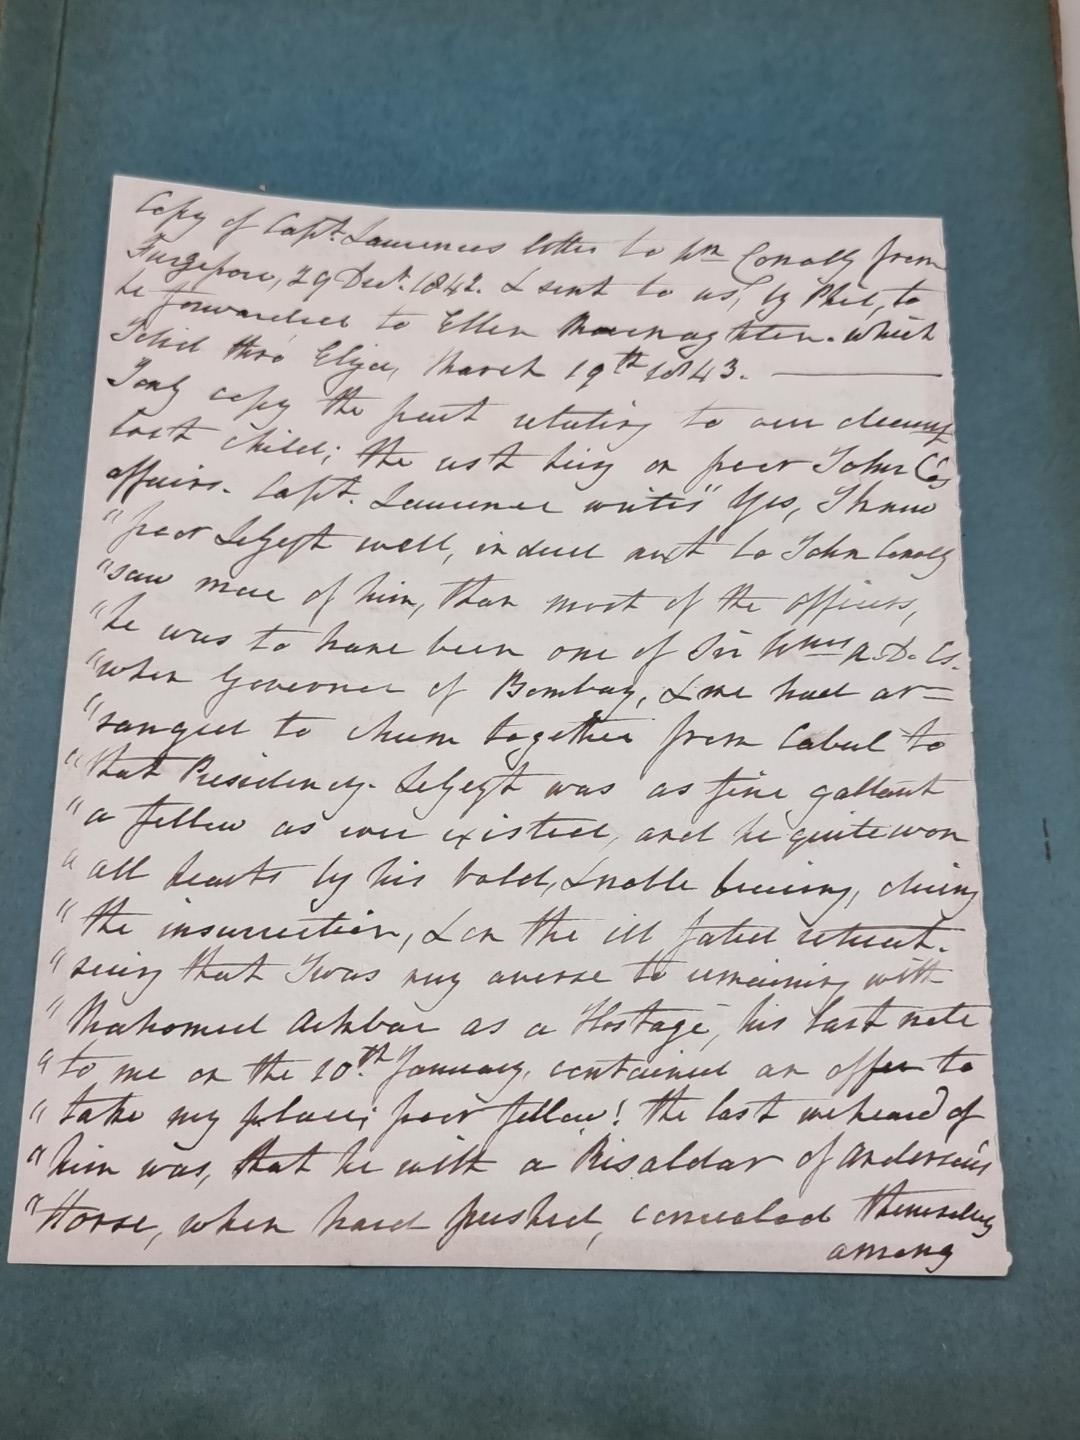 Copy of Capt. Lawrences letter to Wm Conolly from
Furzepore, 29 Decr. 1842. & sent to us, by Phil, to
be forwarded to Ellen Macnaghten. which
I did thro' Eliza, March 19th 1843.
I only copy the part relating to our dearest
lost child; the rest being on poor John C's
affairs. Capt. Lawrence writes "Yes, I knew
"poor LeGeyt well, indeed next to John Conolly
"saw more of him, than most of the officers,
"he was to have been one of Sir Wms A.D.Cs.
"when Governor of Bombay, & we had ar=
"ranged to chum together from Cabul to
"that Presidency. LeGeyt was as fine gallant
"a fellow as ever existed, and he quite won
"all hearts by his bold, & noble bearing, during
"the insurrection, & on the ill fated retreat.
"seeing that I was very averse to remaining with
"Mahomed Ackbar as a Hostage, his last note
"to me on the 10th. January, contained an offer to
"take my place; poor fellow! the last we heard of
"him was, that he with a Risaldar of Anderson's
"Horse, when hard pushed, concealed themselves
among